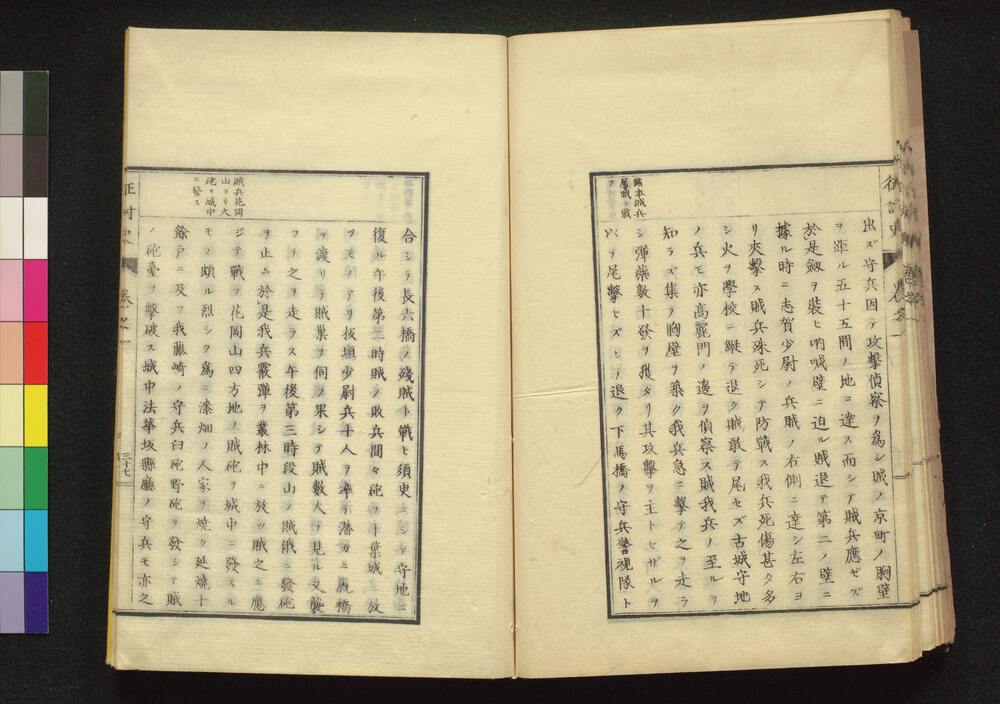 出ズ守兵因テ攻撃偵察ヲ爲シ賊ノ京町ノ胸壁
ヲ距ル五十五間ノ地ニ達ス而シテ賊兵應ゼズ
於是劔ヲ裝ヒ吶喊壁ニ迫ル賊退テ第二ノ壁ニ
據ル時ニ志賀少尉ノ兵賊ノ右側ニ達シ左右ヨ
リ夾撃ス賊兵殊死シテ防戰ス我兵死傷甚タ多
シ火ヲ學校ニ縱テ退ク賊敢テ尾セズ古城守地
ノ兵モ亦高麗門ノ邊ヲ偵察ス賊我兵ノ至ルヲ
知ラズ集テ胸壁ヲ築ク我兵急ニ撃テ之ヲ走ラ
シ彈藥數十發ヲ獲タリ其攻撃ヲ主トセザルヲ
以テ尾撃セズシテ退ク下馬橋ノ守兵警視隊ト
熊本城兵
屢賊ト戰
フ
征討史
卷
合シテ長六橋ノ殘賊ト戰ヒ須臾ニシテ守地ニ
復ル午後第二時賊ノ敗兵間々砲ヲ千葉城ニ放
ツモノアリ板垣少尉兵十人ヲ率テ潜カニ厩橋
ヲ渡リテ賊巢ヲ伺フ果シテ賊數人ヲ見ル又襲
フテ之ヲ走ラス午後第三時段山ノ賊俄ニ發砲
ヲ止ム於是我兵霰彈ヲ叢林中ニ放ツ賊之ニ應
ジテ戰フ花岡山四方地ノ賊砲ヲ城中ニ發スル
モノ頗ル烈シク爲ニ漆畑ノ人家ヲ燒ク延燒十
餘戸ニ及フ我藤崎ノ守兵臼砲野砲ヲ發シテ賊
ノ砲臺ヲ撃破ス城中法華坂縣廳ノ守兵モ亦之
賊兵花岡
山ヨリ大
砲ヲ城中
ニ發ス
三十七